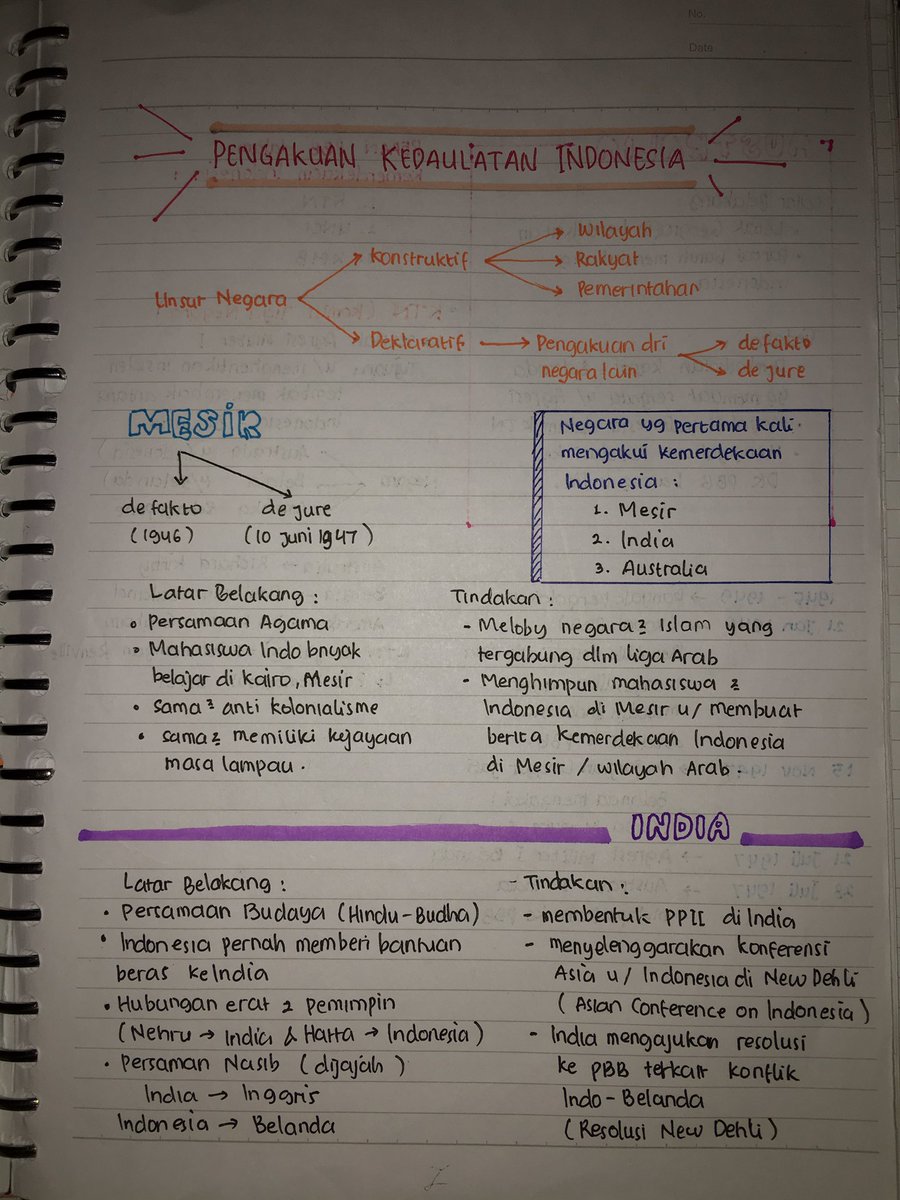 No.
Date
PENGAKUAN KEDAULATAN INDONESIA
Unsur Negara
Konstruktif
Wilayah
Rakyat
Pemerintahan
Deklaratif
Pengakuan dri
negara lain
de fakto
de jure
MESIR
de fakto
(1946)
de jure
(10 Juni 1947)
Negara yg pertama kali
mengakui kemerdekaan
Indonesia :
1. Mesir
2. India
3. Australia
Latar Belakang :
• Persamaan Agama
• Mahasiswa Indo bnyak
belajar di Kairo, Mesir
• Sama² anti kolonialisme
• sama² memiliki kejayaan
masa lampau.
Tindakan :
- Meloby negara² Islam yang
tergabung dlm liga Arab
- Menghimpun mahasiswa²
Indonesia di Mesir u/ membuat
berita kemerdekaan Indonesia
di Mesir / wilayah Arab.
INDIA
Latar Belakang :
• Persamaan Budaya (Hindu-Budha)
• Indonesia pernah memberi bantuan
beras ke India
• Hubungan erat 2 pemimpin
(Nehru → India & Hatta → Indonesia)
• Persaman Nasib (dijajah)
India → Inggris
Indonesia → Belanda
- Tindakan :
- membentuk PPII di India
- menyelenggarakan konferensi
Asia u/ Indonesia di New Dehli
(Asian Conference on Indonesia)
- India mengajukan resolusi
ke PBB terkait konflik
Indo-Belanda
(Resolusi New Dehli)